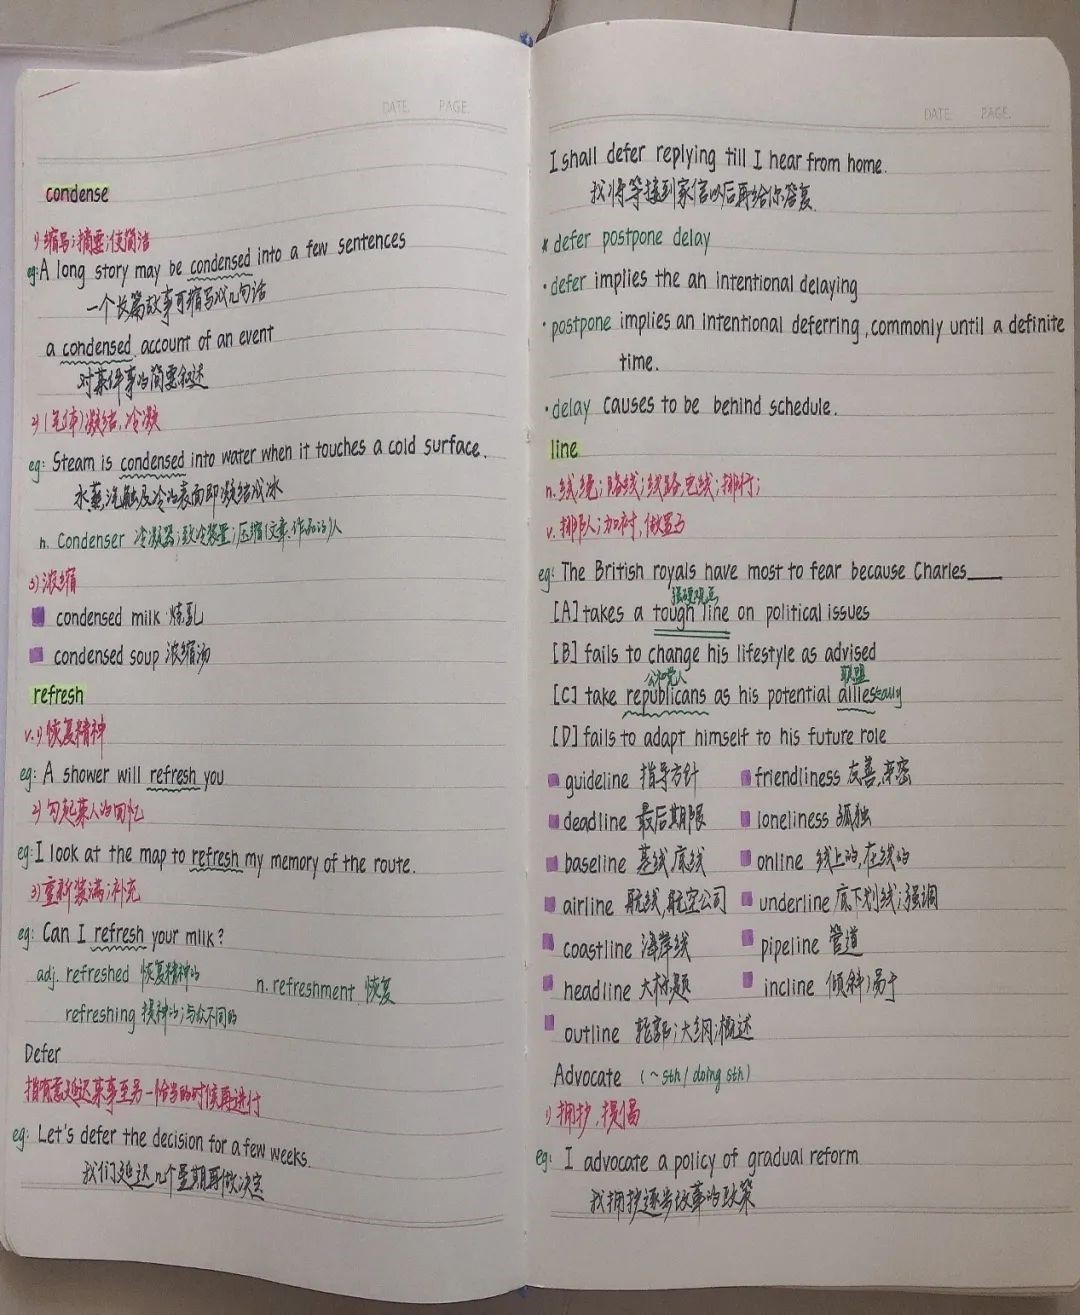 DATE. PAGE.
condense
1) 缩写;摘要;使简洁
eg: A long story may be condensed into a few sentences
一个长篇故事可缩写成几句话
a condensed account of an event
对某件事的简要叙述
2) (气体)凝结,冷凝
eg: Steam is condensed into water when it touches a cold surface.
水蒸汽触及冷的表面即凝结成冰
n. Condenser 冷凝器;致冷装置;压缩(文章、作品的)人
3) 浓缩
condensed milk 炼乳
condensed soup 浓缩汤
refresh
v. 1) 恢复精神
eg: A shower will refresh you
2) 勾起某人的回忆
eg: I look at the map to refresh my memory of the route.
3) 重新装满;补充
eg: Can I refresh your milk?
adj. refreshed 恢复精神的 n. refreshment 恢复
refreshing 提神的;与众不同的
Defer
指有意延迟某事至另一恰当的时候再进行
eg: Let's defer the decision for a few weeks.
我们延迟几个星期再做决定
DATE PAGE.
I shall defer replying till I hear from home.
我将等接到家信以后再给你答复
* defer postpone delay
·defer implies the an intentional delaying
·postpone implies an intentional deferring, commonly until a definite
time.
·delay causes to be behind schedule.
line
n. 线,绳;路线;线路,电线;排,行;
v. 排队;加衬,做置于
eg: The British royals have most to fear because Charles___
强硬观点
[A] takes a tough line on political issues
[B] fails to change his lifestyle as advised
共和党人 联盟
[C] take republicans as his potential allies
[D] fails to adapt himself to his future role
guideline 指导方针 friendliness 友善,亲密
deadline 最后期限 loneliness 孤独
baseline 基线,底线 online 线上的,在线的
airline 航线,航空公司 underline 底下划线;强调
coastline 海岸线 pipeline 管道
headline 大标题 incline 倾斜;易于
outline 轮廓;大纲;概述
Advocate (~ sth / doing sth)
1) 拥护,提倡
eg: I advocate a policy of gradual reform
我拥护逐步改革的政策